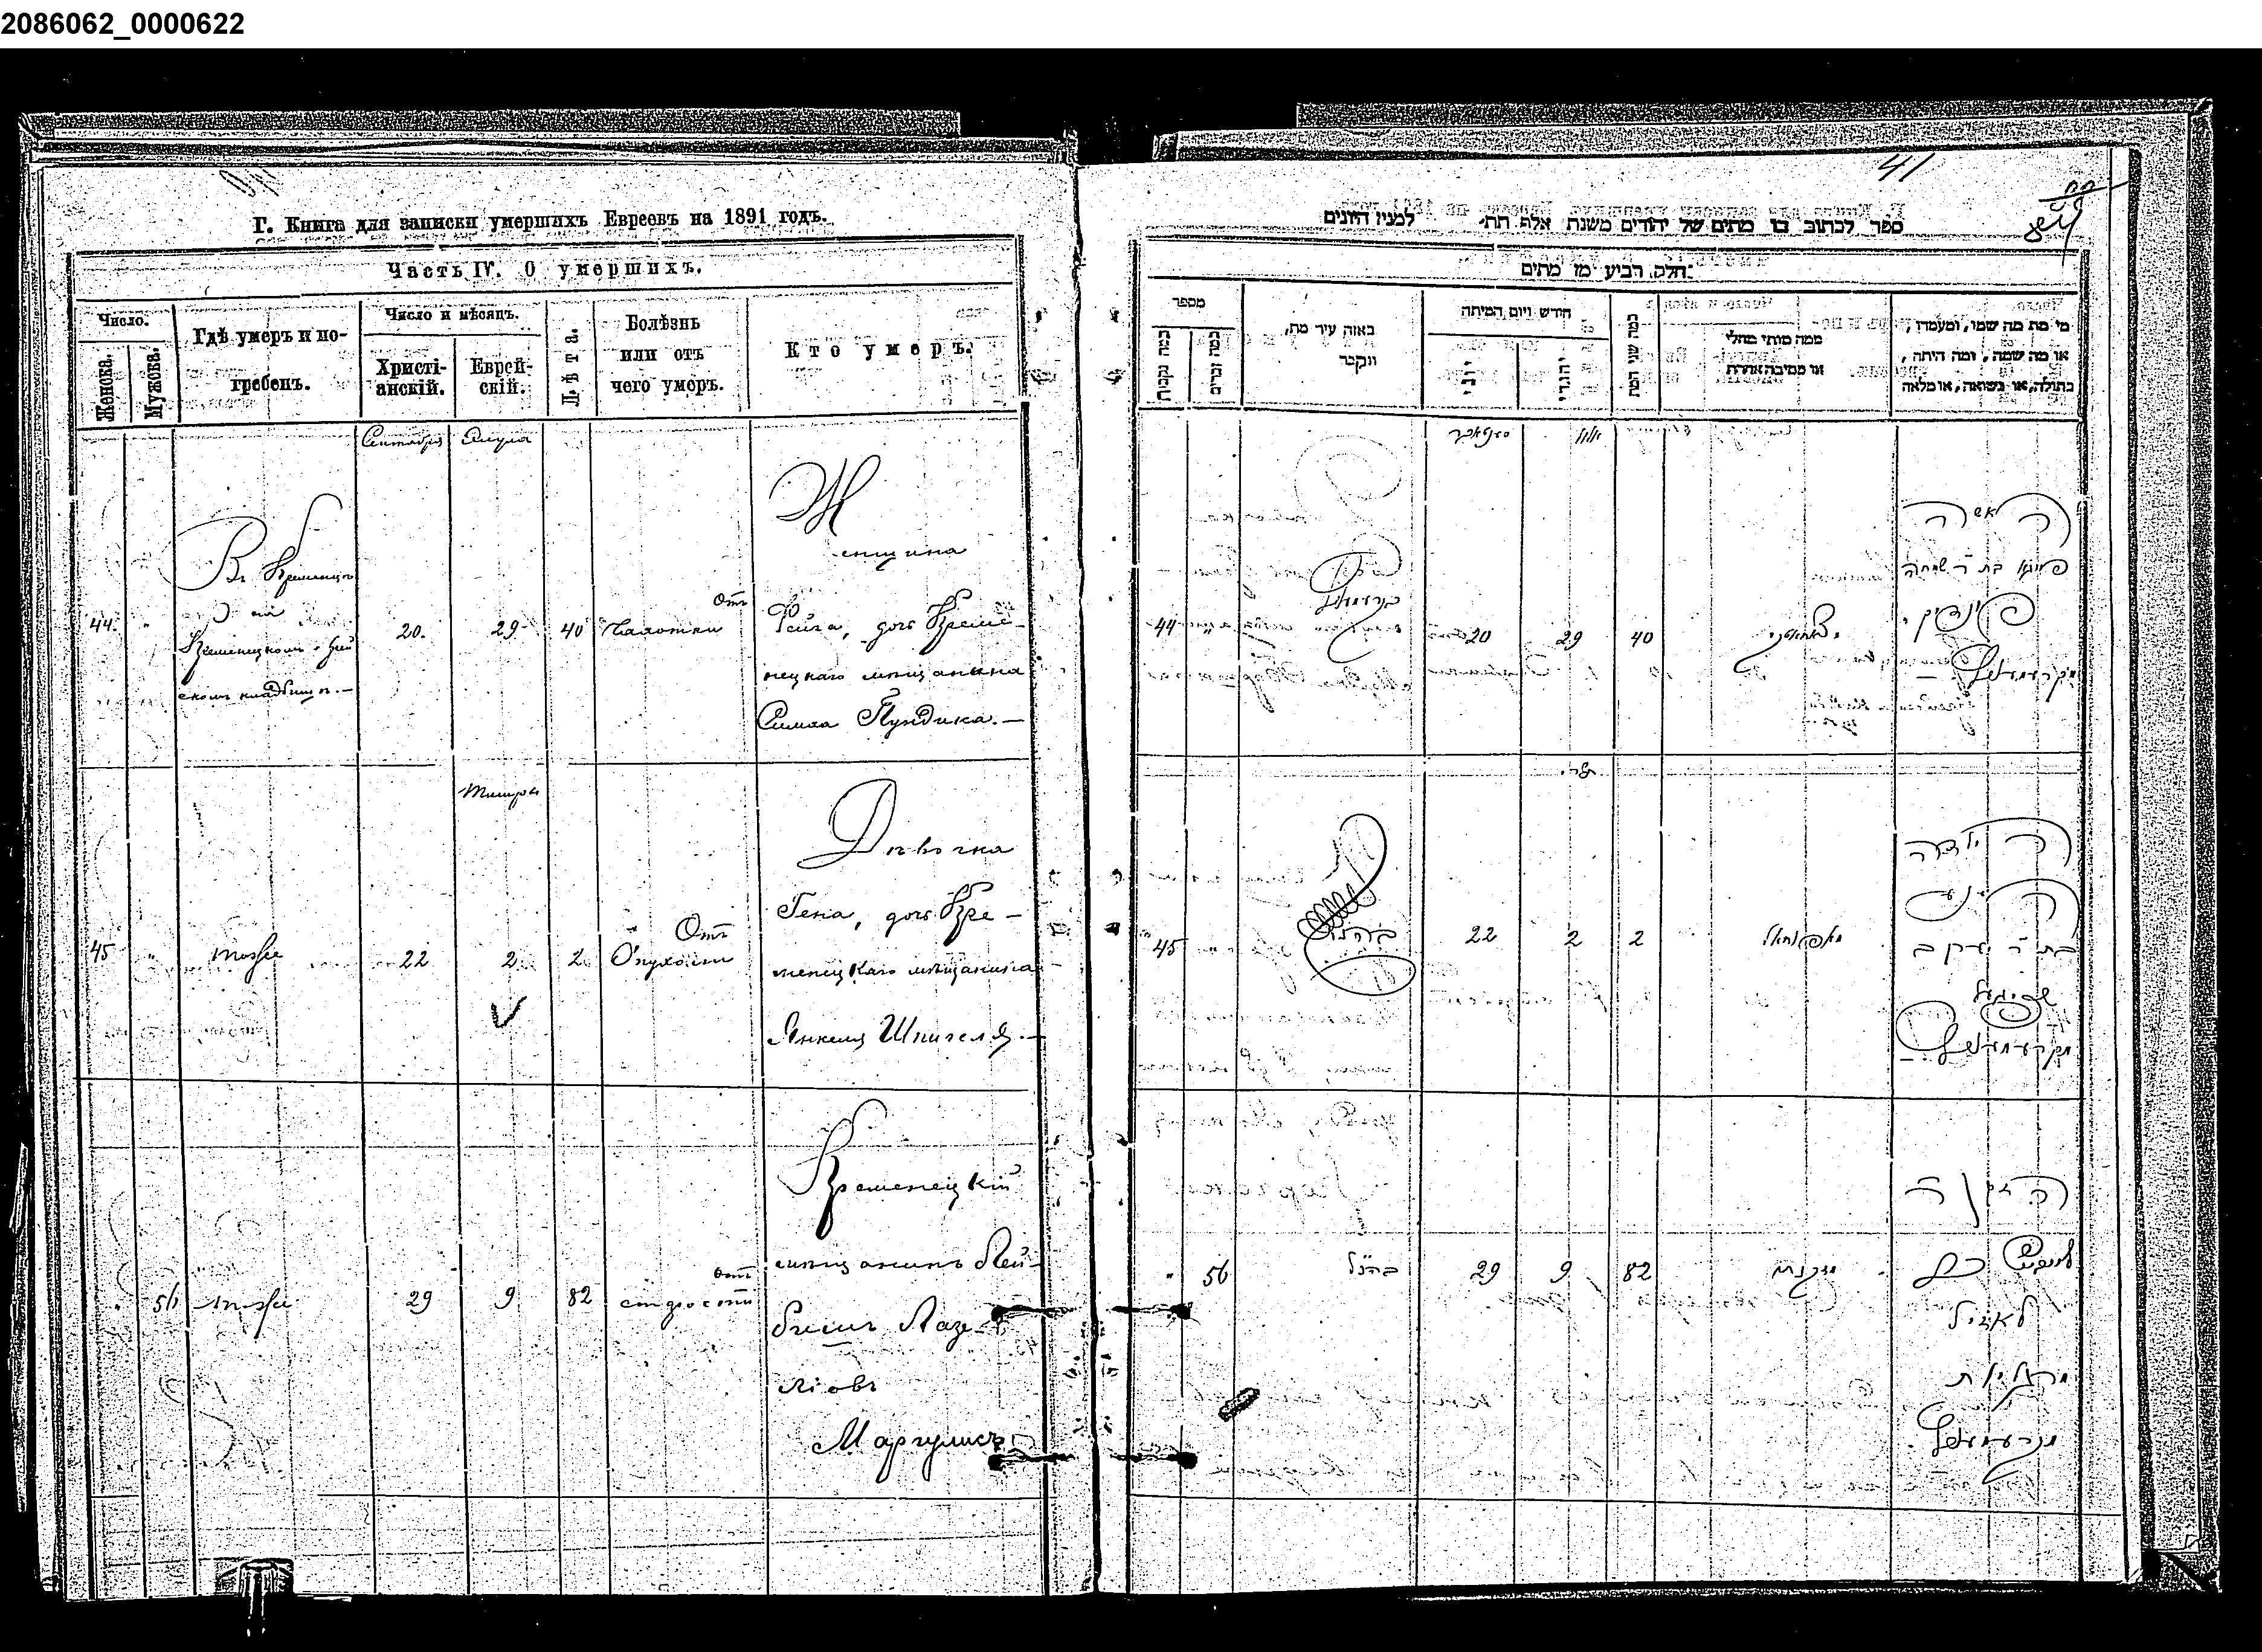 2086062_0000622
Г. Книга для записки умершихъ Евреевъ на 1891 годъ.
Часть IV. О умершихъ.
Число.
Женска.
Мужска.
Гдѣ умеръ и погребенъ.
Число и мѣсяцъ.
Христіанскій.
Еврейскій.
Лѣта.
Болѣзнь
или отъ
чего умеръ.
Кто умеръ.
Сентября
Элула
44.
Въ Кременцѣ
на
Кременецкомъ
скомъ кладбищѣ.—
20.
29
40
Отъ
Чахотки
Женщина
Фейга, дочь Креме-
нецкаго мѣщанина
Симха Пундика.—
Тишри
45
тоже
22
2
2
Отъ
Опухоли
Дѣвочка
Гена, дочь Кре-
менецкаго мѣщанина
Янкеля Шпигеля.—
56
тоже
29
9
82
отъ
старости
Кременецкій
мѣщанинъ Лей-
Маргулисъ
41
ספר לכתוב בו מתים של יהודים משנת אלף תת׳ למנין היונים
חלק רביע מן מתים
מספר
כמה נקבות
כמה זכרים
באזה עיר מת,
ונקבר
חודש ויום המיתה
יוני
יהודי
כמה שני המת
ממה מותו מחלי
או מסיבה אחרת
מי מת מה שמו, ומעמדו,
או מה שמה, ומה היתה,
בתולה, או נשואה, או מלאה
סענטאבר
אלול
44
קרעמעניץ
20
29
40
האשה
פייגא בת ר׳ שמחה
פונדיק
מקרעמעניץ
תשרי
45
כנ״ל
22
2
2
הילדה
בת ר׳ יעקב
שפיגיל
מקרעמעניץ
56
כנ״ל
29
9
82
מזקנה
הזקן ר׳
מרגליות
מקרעמעניץ